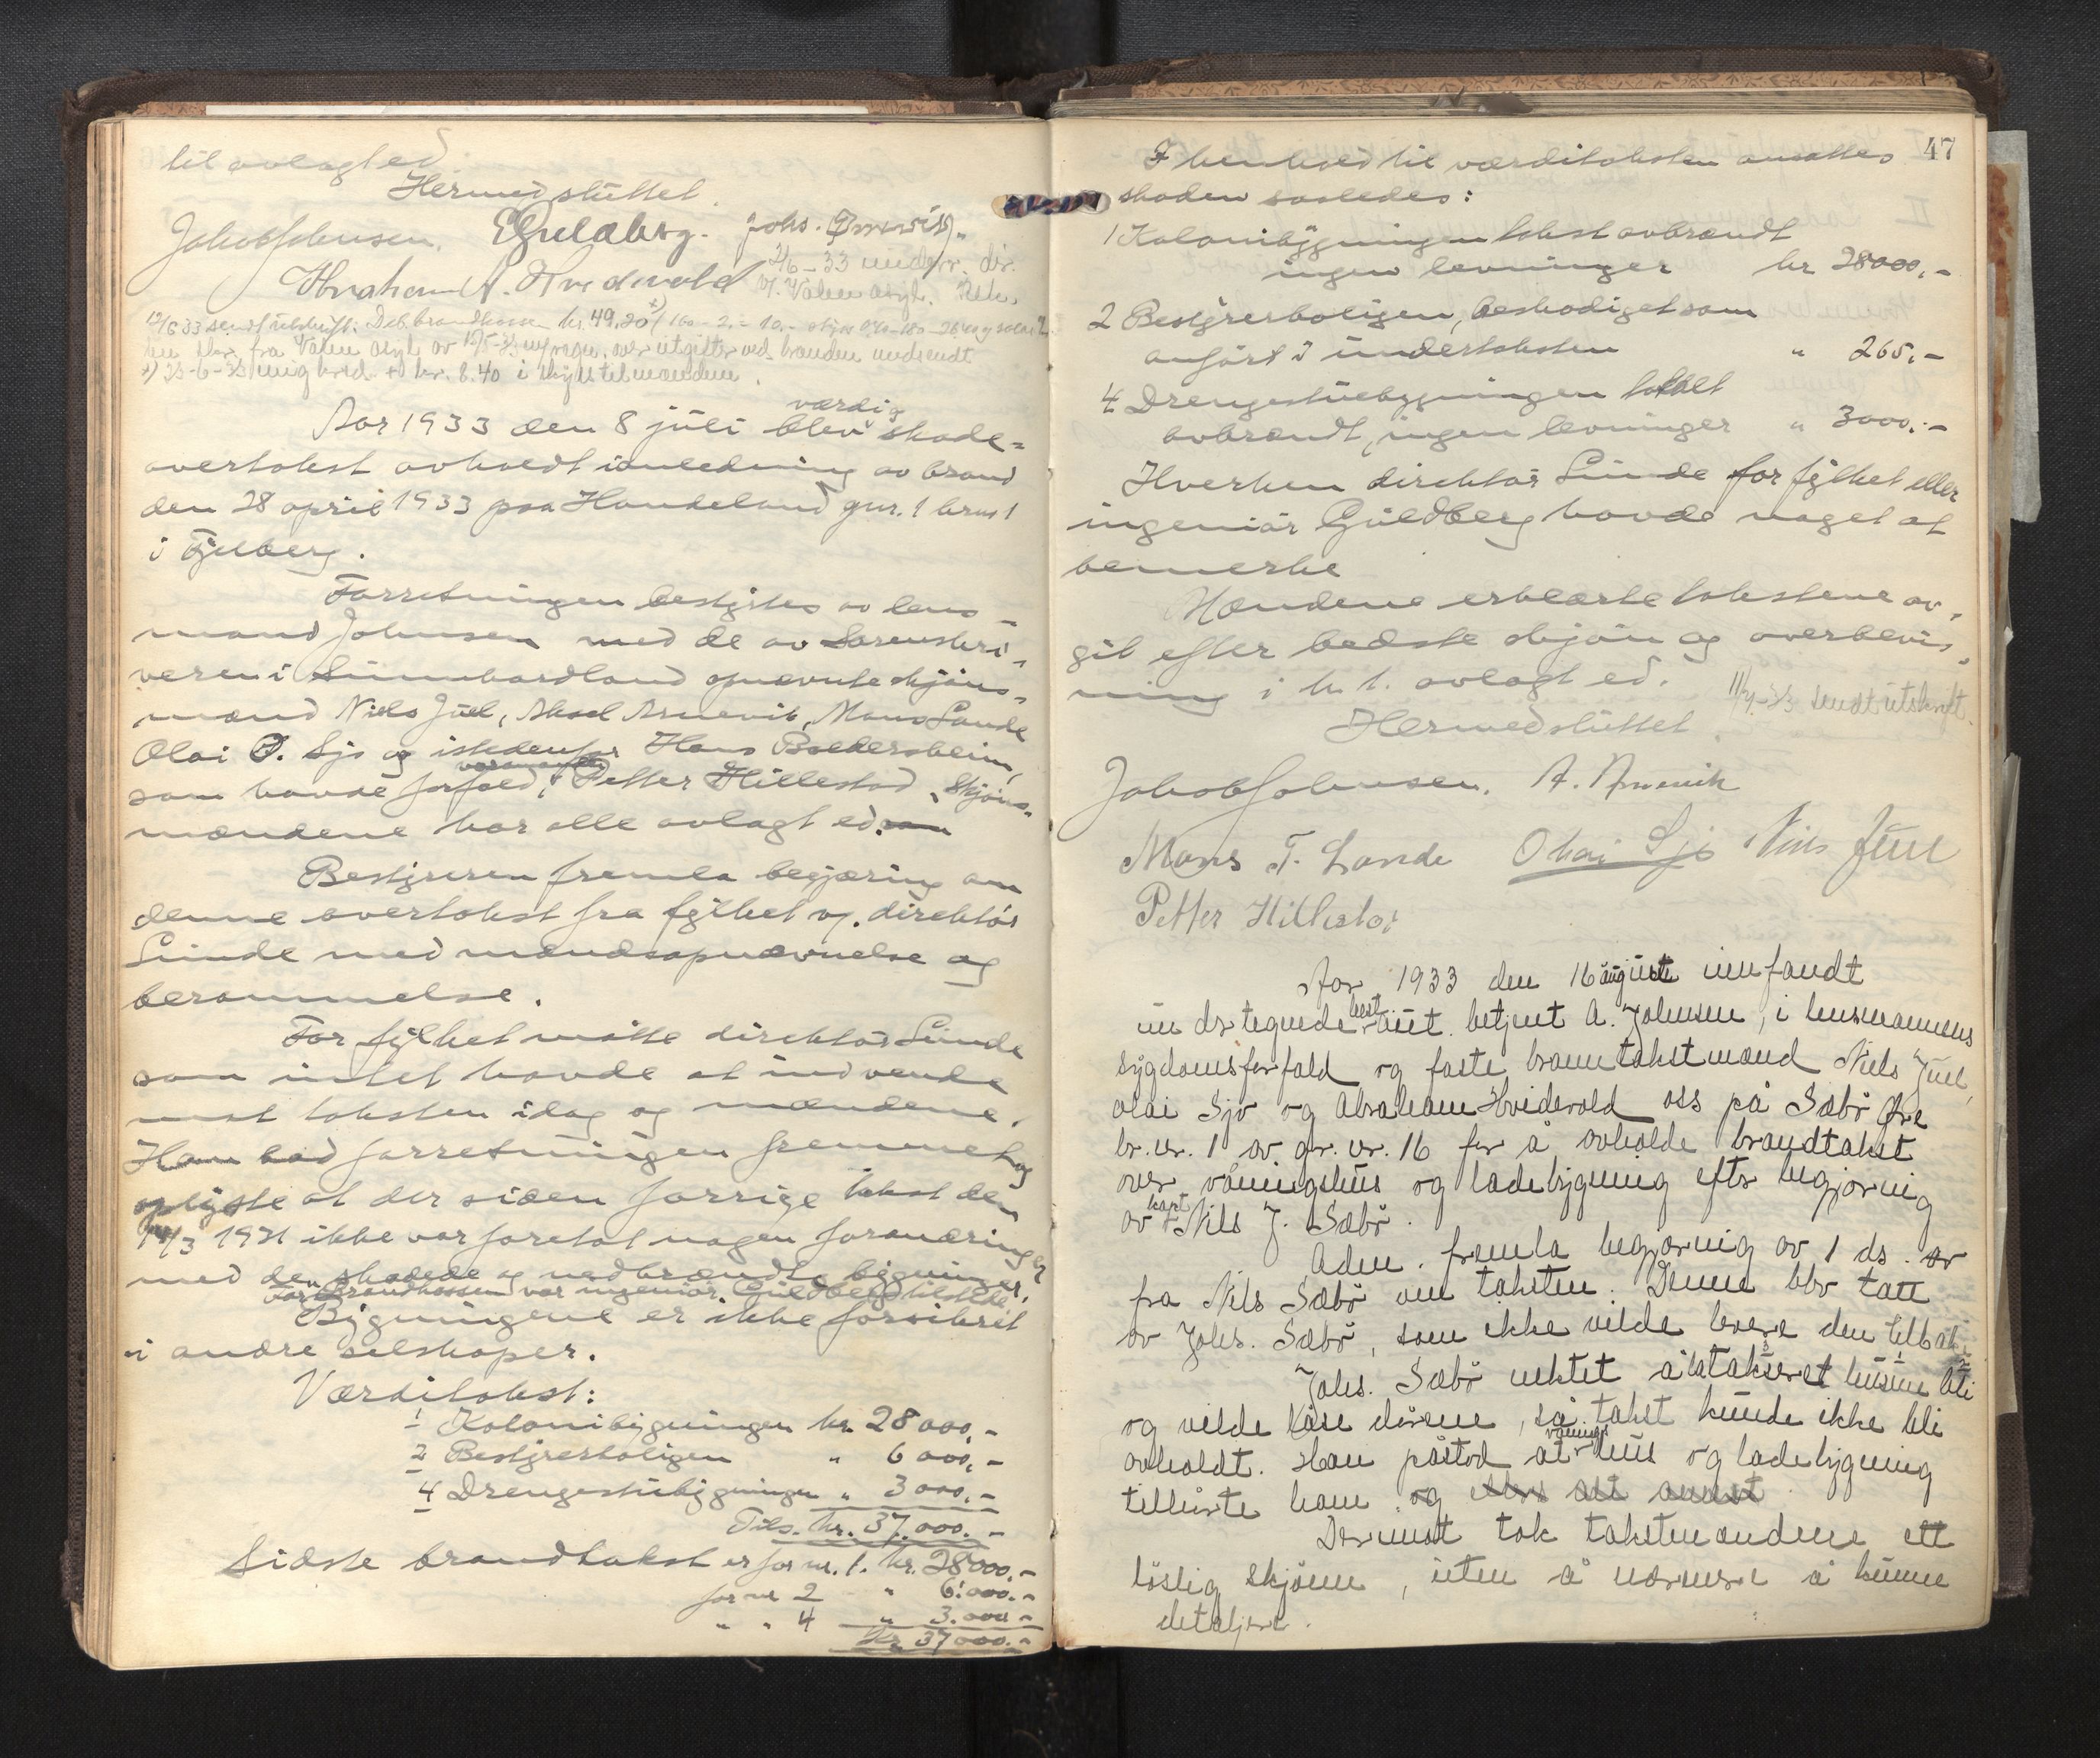 til avlagt ed
Hermed sluttet.
Jakob Johnsen. EGuldberg. Johs. Arnevik.
Abraham A. Hvidevold
2/6-33 underr. dir.
v/ Valen asyl.
12/6 33 sendt utskrift. Deb. brandkassen kr. 49,20
fra Valen asyl av utgifter ved branden undsendt
kr. 8.40 i skyss til mændene.
Aar 1933 den 8 juli blev værdi og skade-
overtakst avholdt i anledning av brand
den 28 april 1933 paa Handeland gnr. 1 brnr 1
i Fjelberg.
Forretningen bestyrtes av lens-
mand Johnsen med de av Sorenskri-
veren i Sunnhordland opnævnte skjøns-
mænd Niels Juel, Aksel Arnevik, Mons Lande
Olai O. Sjo og istedenfor Hans Baldersheim,
som havde forfald, varamand Petter Hillestad. Skjøns-
mændene har alle avlagt ed.
Bestyreren fremla begjæring om
denne overtakst fra fylket v/ direktør
Lunde med mandsopnævnelse og
berammelse.
For fylket møtte direktør Lunde
som intet havde at indvende
mot taksten idag og mændene.
Han bad forretningen fremmet og
oplyste at der siden forrige takst den
14/3 1921 ikke var foretat nogen forandringer
med de skadede og nedbrændte bygninger.
For Brandkassen var ingeniør Guldberg tilstede.
Bygningene er ikke forsikret
i andre selskaper.
Værditakst:
1 Kolonibygningen kr. 28000,-
2 Bestyrerboligen " 6000,-
4 Drengestubygningen " 3000,-
Tils. kr. 37.000.-
Sidste brandtakst er for nr. 1. kr. 28000.-
for nr 2 " 6.000.-
" " 4 " 3.000-
kr 37000.-
47
I henhold til værditaksten ansattes
skaden saaledes:
1 Kolonibygningen takst avbrændt
ingen levninger kr 28000,-
2 Bestyrerboligen, beskadiget som
anført i undertaksten " 265,-
4 Drengestuebygningen totalt
avbrændt, ingen levninger " 3000.-
Hverken direktør Lunde for fylket eller
ingeniør Guldberg havde noget at
bemerke
Mændene erklærte takstene av-
git efter bedste skjøn og overbevis-
ning i h. t. avlagt ed.
11/7-33 sendt utskrift.
Hermed sluttet.
Jakob Johnsen. A. Arnevik
Mons T. Lande Olai Sjo Niels Juel
Petter Hillestad
Aar 1933 den 16 august innfandt
undertegnede best. aut. betjent A. Johnsen, i lensmannens
sygdomsforfald og faste branntakstmænd Niels Juel,
Olai Sjo og Abraham Hvidevold oss på Sæbø Øvre
br. nr. 1 av gr. nr. 16 for å avholde brandtakst
over våningshus og ladebygning efter begjæring
av kapt Nils J. Sæbø.
Adm. fremla begjæring av 1 ds. av
fra Nils Sæbø om taksten. Denne blev tatt
av Johs. Sæbø, som ikke vilde levere den tilbake.
Johs. Sæbø nektet å la taksere husene
og vilde låse dørene, så takst kunde ikke bli
avholdt. Han påstod at våningshus og ladebygning
tilhørte ham. og ellers alt annet
Derimot tok takstmændene ett
løslig skjønn, uten å nærmere å kunne
detaljere.